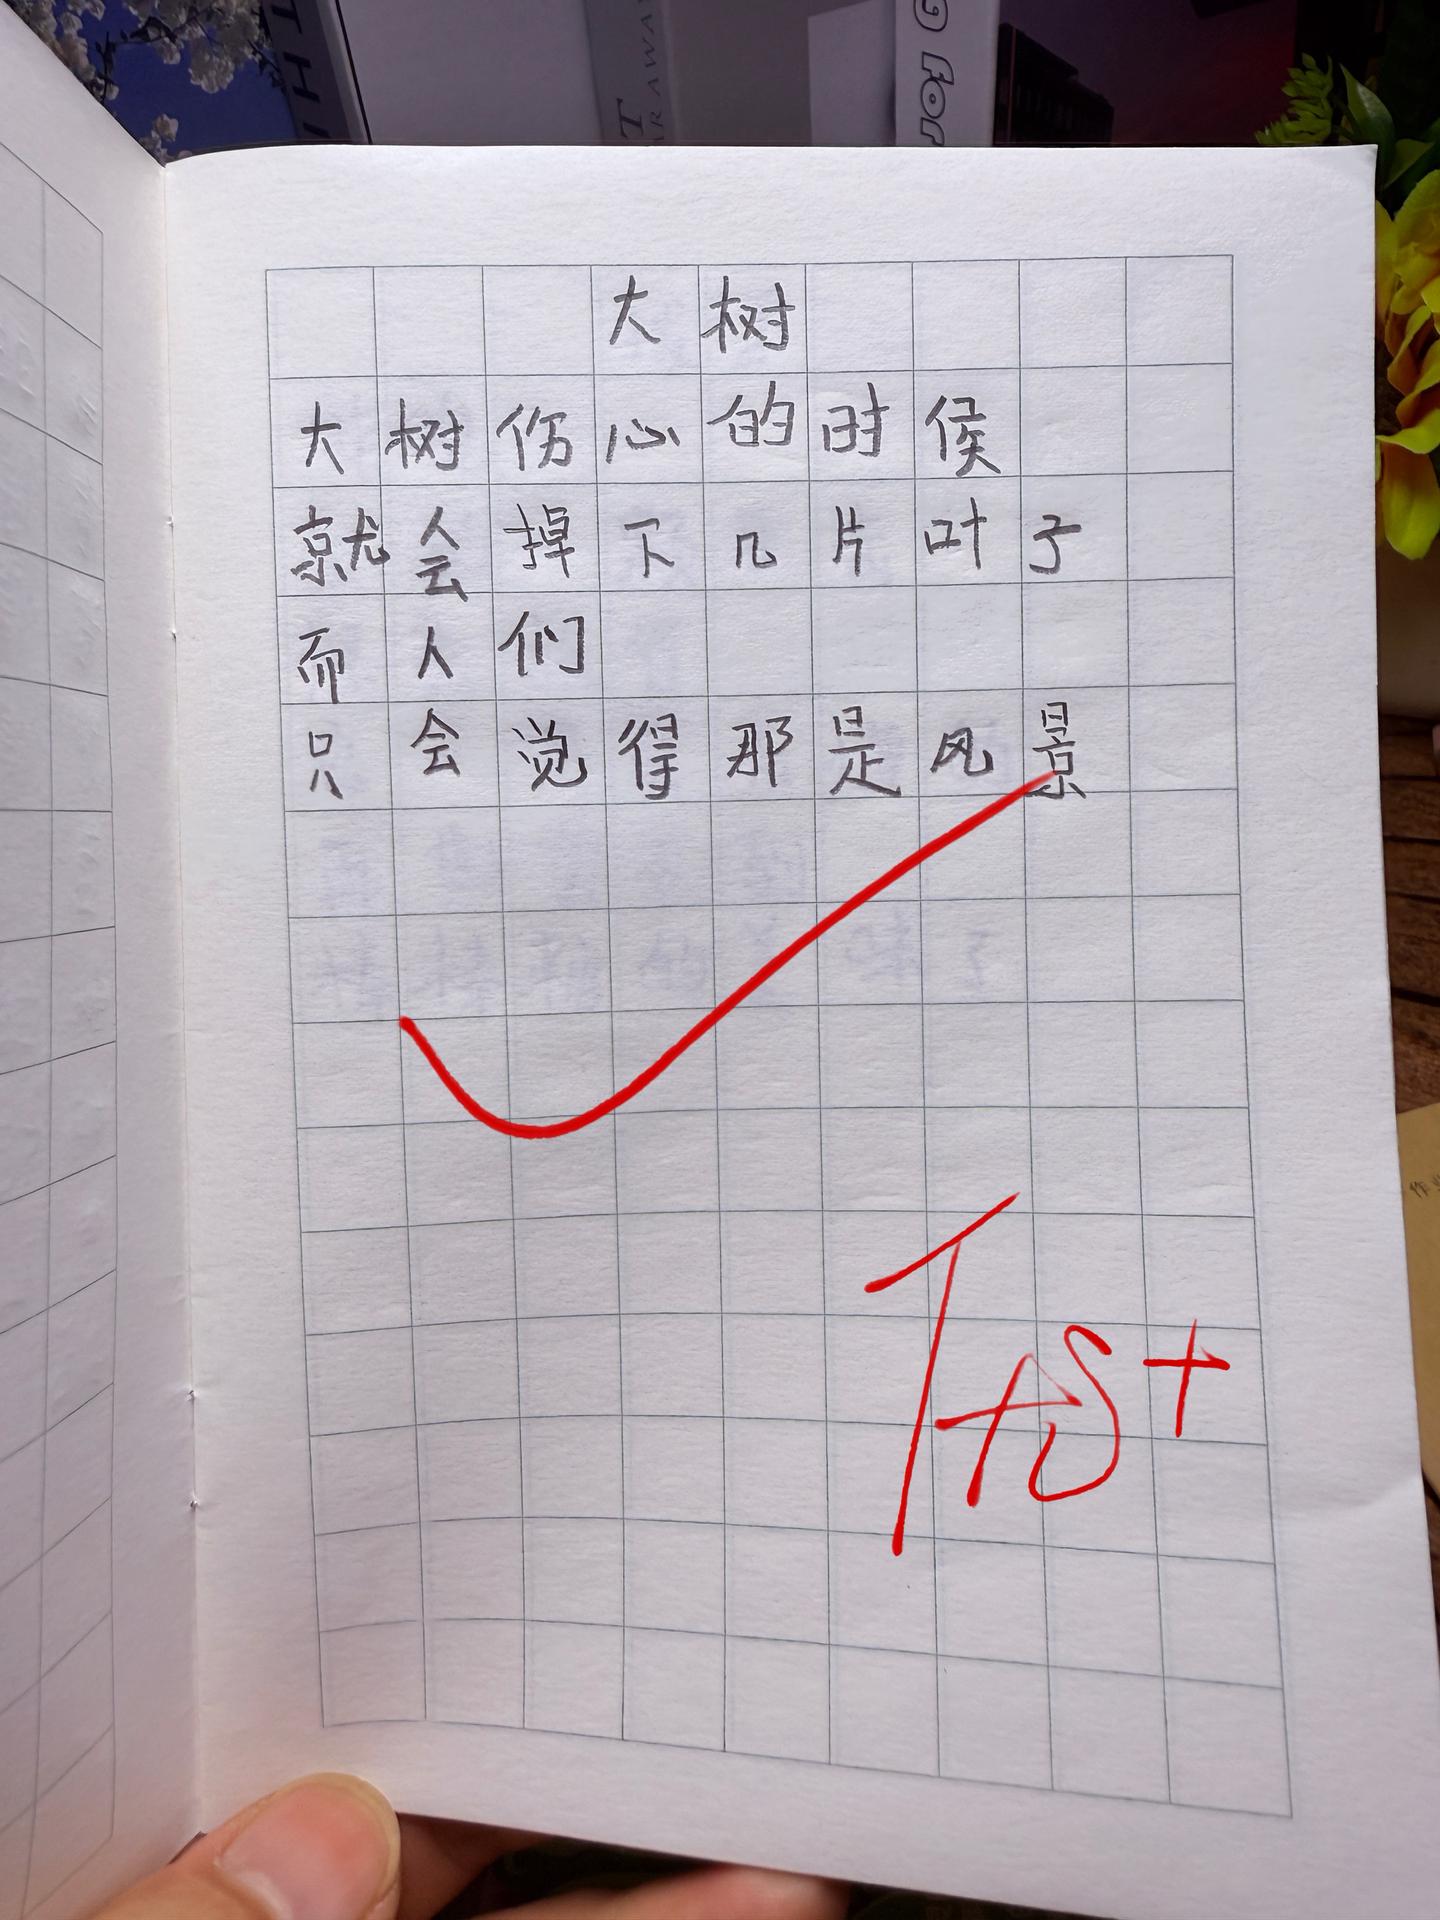 THI
T
AR AWAY
g for
大树
大树伤心的时侯
就会掉下几片叶子
而人们
只会觉得那是风景